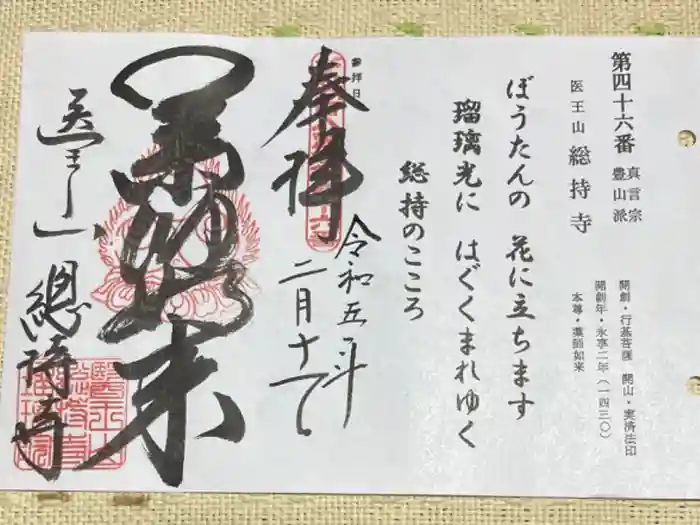 第四十六番
真言宗
豊山派
医王山 総持寺
開創・行基菩薩 開山・実済法印
開創年・永享二年(一四三〇)
本尊・薬師如来
ぼうたんの 花に立ちます
瑠璃光に はぐくまれゆく
総持のこころ
参拝日
奉拝
令和五年
二月十八
薬師如来
医王山
總持寺